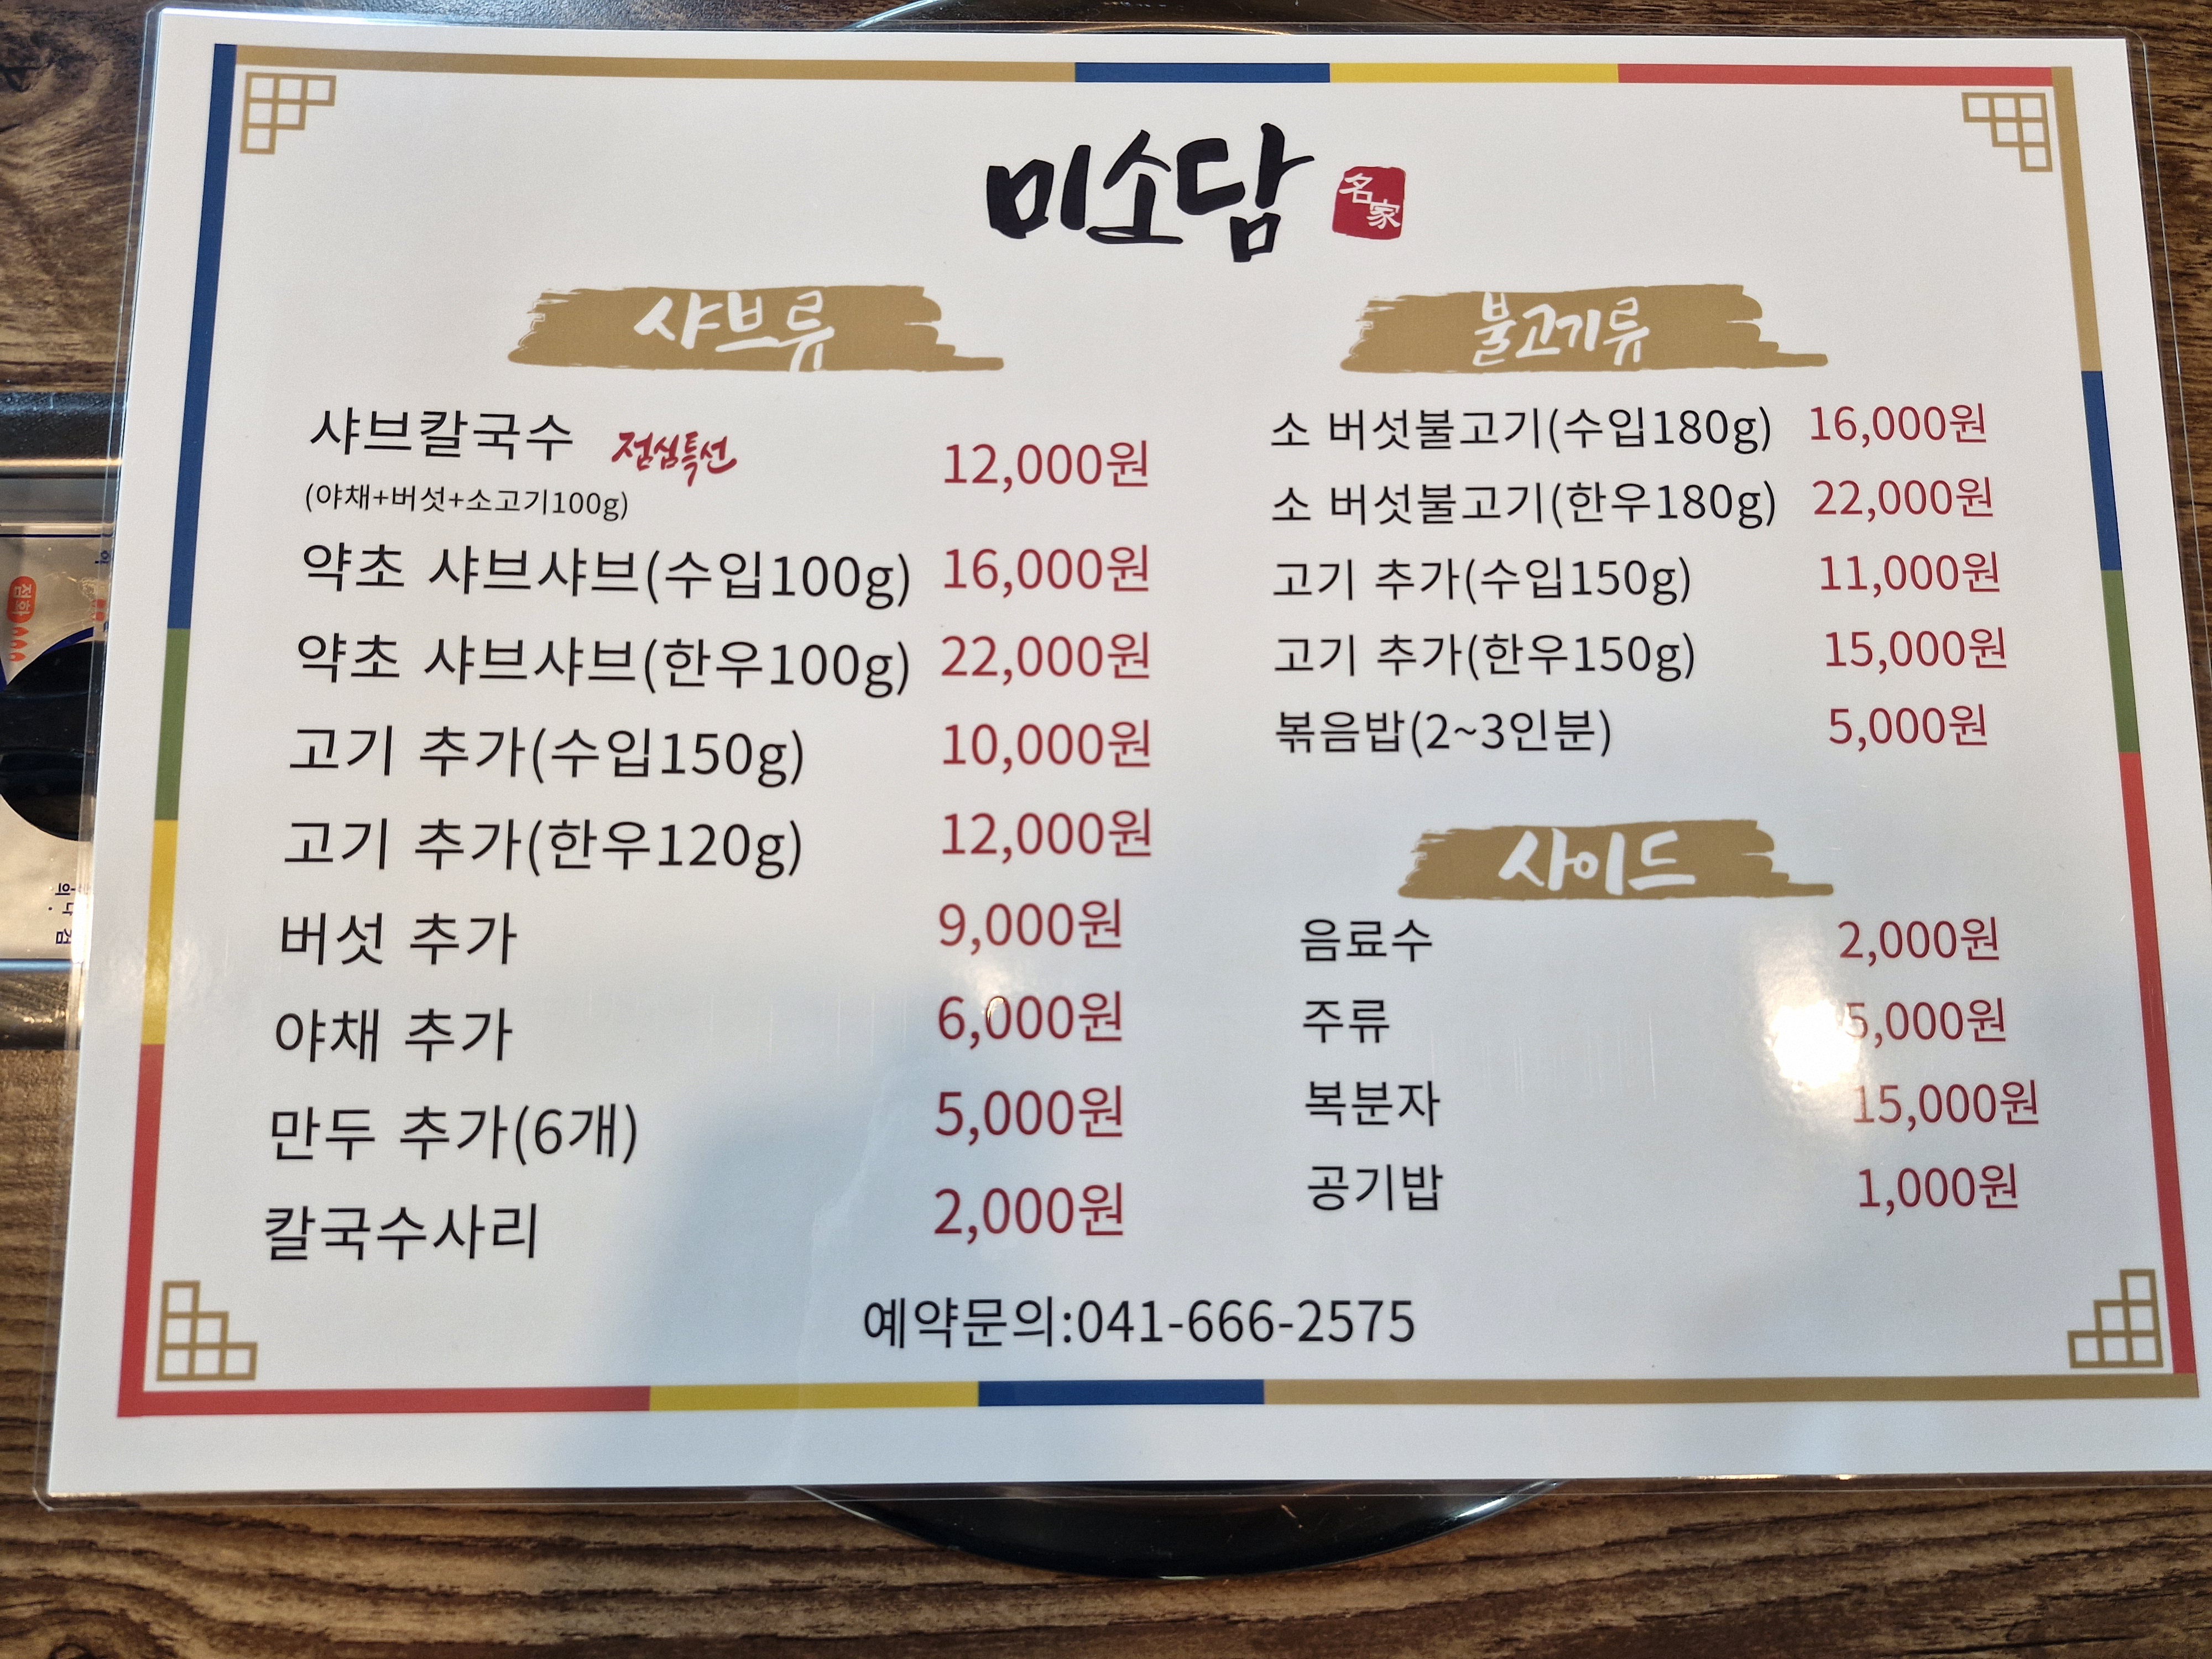 미소담
名家
샤브류
샤브칼국수 점심특선 12,000원
(야채+버섯+소고기100g)
약초 샤브샤브(수입100g) 16,000원
약초 샤브샤브(한우100g) 22,000원
고기 추가(수입150g) 10,000원
고기 추가(한우120g) 12,000원
버섯 추가 9,000원
야채 추가 6,000원
만두 추가(6개) 5,000원
칼국수사리 2,000원
불고기류
소 버섯불고기(수입180g) 16,000원
소 버섯불고기(한우180g) 22,000원
고기 추가(수입150g) 11,000원
고기 추가(한우150g) 15,000원
볶음밥(2~3인분) 5,000원
사이드
음료수 2,000원
주류 5,000원
복분자 15,000원
공기밥 1,000원
예약문의:041-666-2575
점화